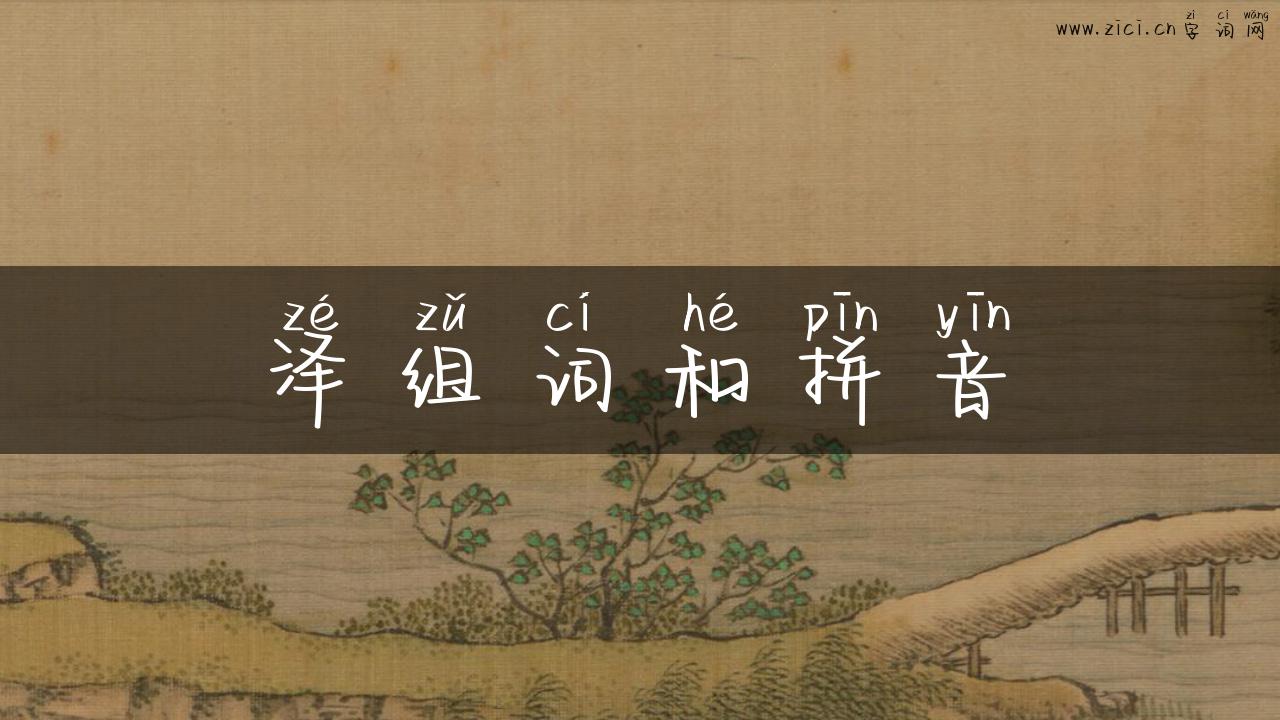 zì cí wǎng
www.zici.cn 字 词 网
zé zǔ cí hé pīn yīn
泽 组 词 和 拼 音